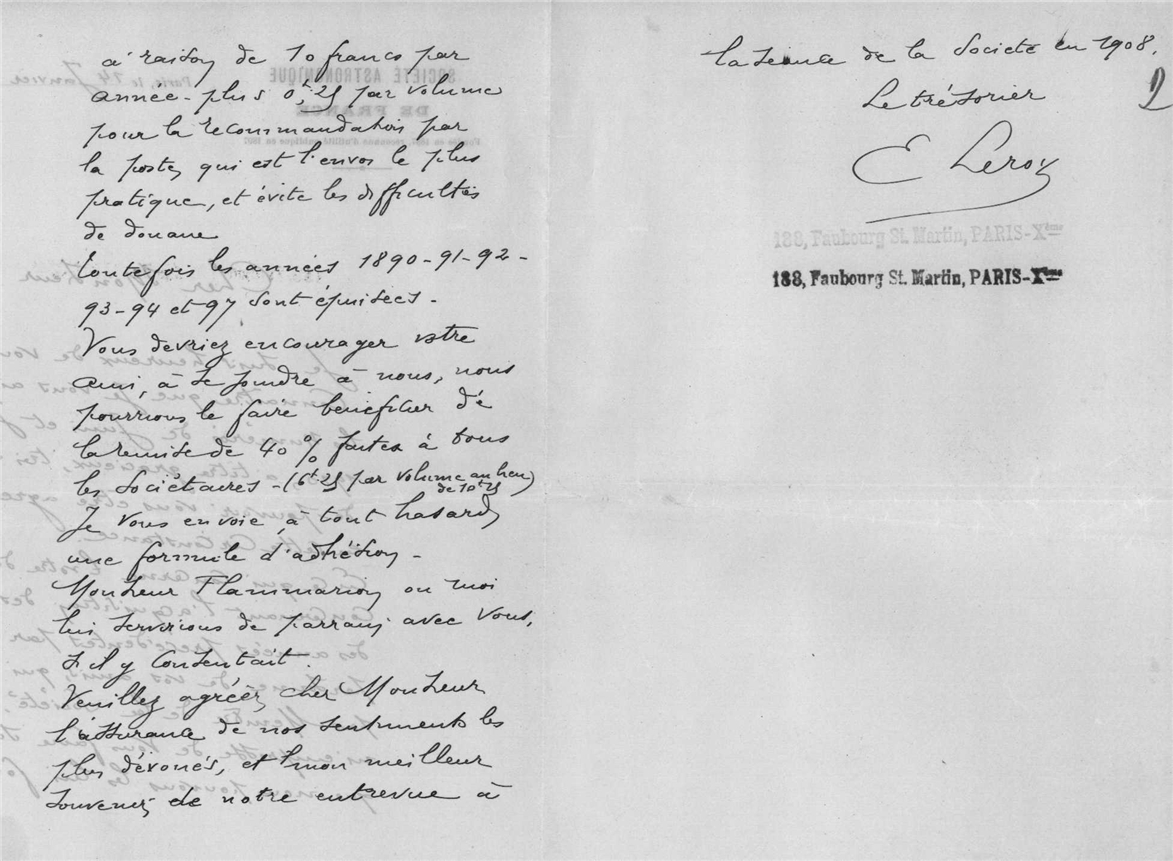 à raison de 10 francs par
année - plus 0,f25 par volume
pour la recommandation par
la poste, qui est l'envoi le plus
pratique, et évite les difficultés
de douane
Toutefois les années 1890-91-92-
93-94 et 97 sont épuisées -
Vous devriez encourager votre
ami, à se joindre à nous, nous
pourrions le faire bénéficier de
la remise de 40 % faites à tous
les Sociétaires - (6f25 par volume au lieu
de 10f25)
Je vous envoie, à tout hasard,
une formule d'adhésion -
Monsieur Flammarion ou moi
lui servirions de parrain avec vous,
s'il y consentait.
Veuillez agréer, cher Monsieur
l'assurance de nos sentiments les
plus dévoués, et mon meilleur
souvenir de notre entrevue à
la séance de la Société en 1908.
2
Le trésorier
E Leroy
188, Faubourg St. Martin, PARIS-Xème
188, Faubourg St. Martin, PARIS-Xème
SOCIÉTÉ ASTRONOMIQUE
DE FRANCE